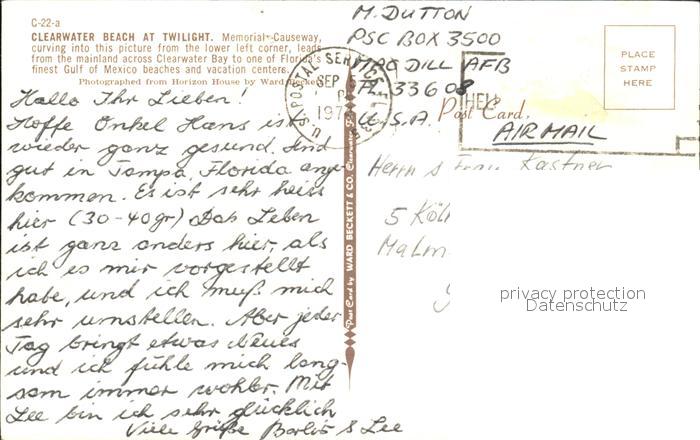 C-22-a
CLEARWATER BEACH AT TWILIGHT. Memorial Causeway,
curving into this picture from the lower left corner, leads
from the mainland across Clearwater Bay to one of Florida's
finest Gulf of Mexico beaches and vacation centers.
Photographed from Horizon House by Ward Beckett
Hallo Ihr Lieben!
Hoffe Onkel Hans ist
wieder ganz gesund. Sind
gut in Tampa, Florida ange-
kommen. Es ist sehr heiss
hier (30-40gr) Das Leben
ist ganz anders hier, als
ich es mir vorgestellt
habe, und ich muß mich
sehr umstellen. Aber jeder
Tag bringt etwas Neues
und ich fühle mich lang-
sam immer wohler. Mit
Lee bin ich sehr glücklich
Viele Grüße & Lee
Post Card by WARD BECKETT & CO. Clearwater
U.S. POSTAL SERVICE FL
SEP
197
M. DUTTON
PSC BOX 3500
MAC DILL AFB
FL 33608
U.S.A.
Post Card
AIR MAIL
PLACE
STAMP
HERE
Herrn & Frau Kastner
5 Köl
privacy protection
Datenschutz